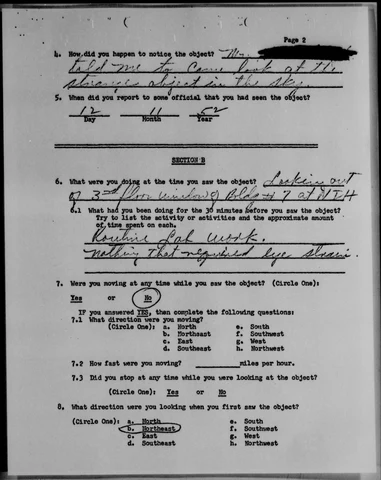 Page 2
4. How did you happen to notice the object? Mr.
told me to come look at the
strange object in the sky.
5. When did you report to some official that you had seen the object?
12 11 52
Day Month Year
SECTION B
6. What were you doing at the time you saw the object? Looking out
of 3rd floor window of Bldg # 7 at NIH
6.1 What had you been doing for the 30 minutes before you saw the object?
Try to list the activity or activities and the approximate amount
of time spent on each.
Routine Lab work.
nothing that required eye strain.
7. Were you moving at any time while you saw the object? (Circle One):
Yes or No
IF you answered YES, then complete the following questions:
7.1 What direction were you moving?
(Circle One): a. North e. South
b. Northeast f. Southwest
c. East g. West
d. Southeast h. Northwest
7.2 How fast were you moving? ________miles per hour.
7.3 Did you stop at any time while you were looking at the object?
(Circle One): Yes or No
8. What direction were you looking when you first saw the object?
(Circle One): a. North e. South
b. Northeast f. Southwest
c. East g. West
d. Southeast h. Northwest